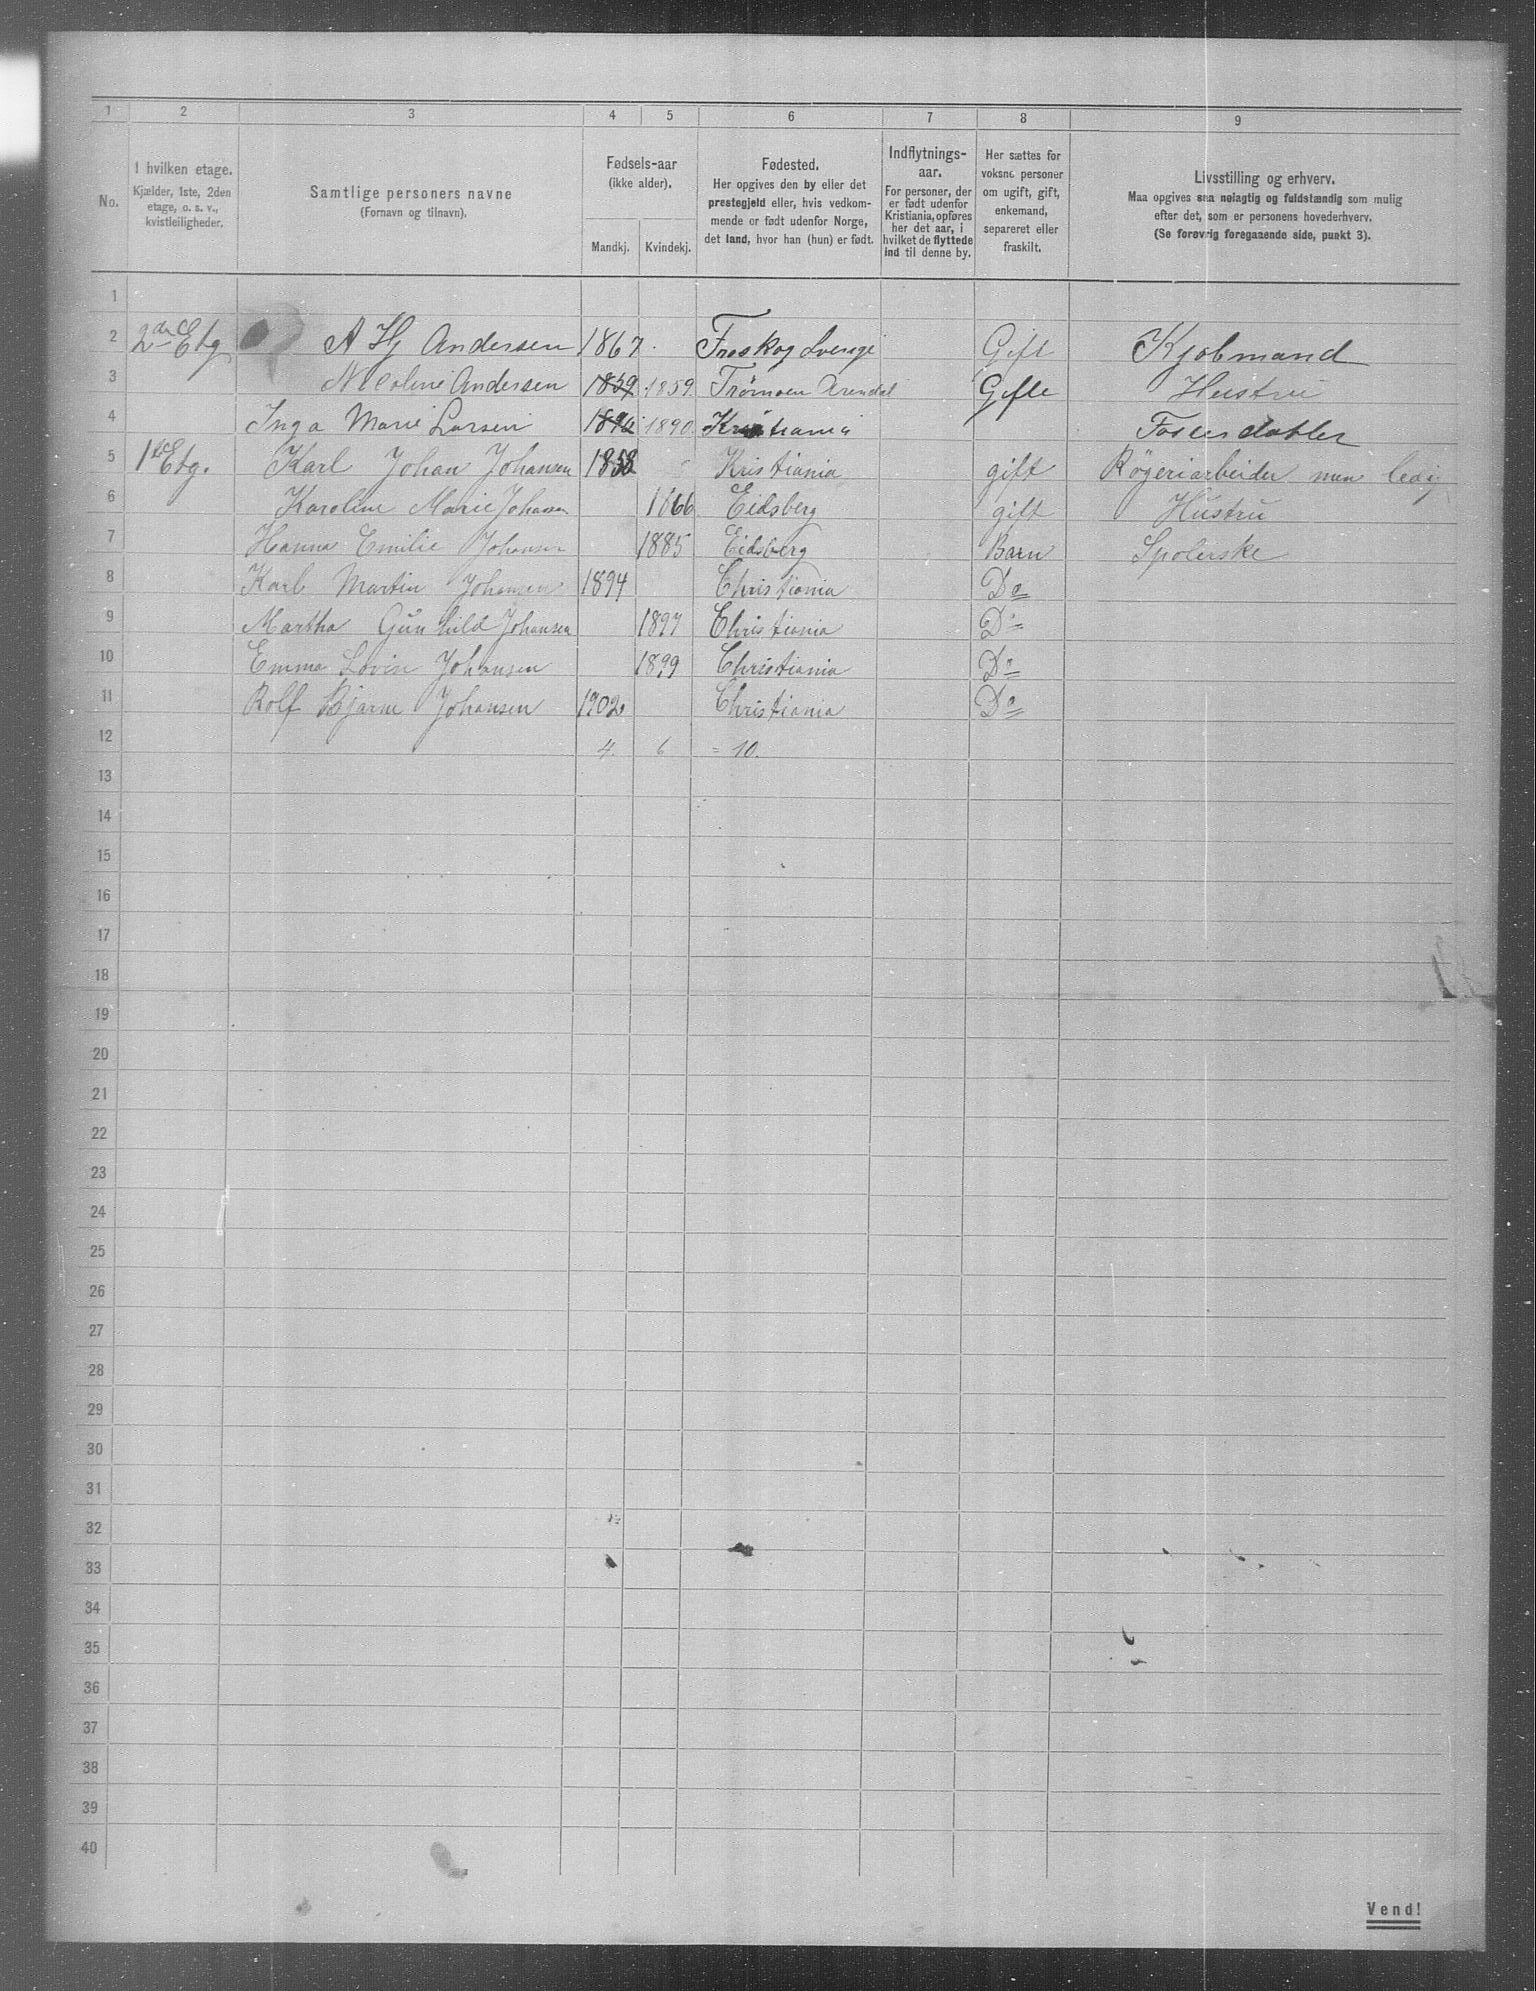 1 2 3 4 5 6 7 8 9
No.
I hvilken etage.
Kjælder, 1ste, 2den
etage, o. s. v.,
kvistleiligheder.
Samtlige personers navne
(Fornavn og tilnavn).
Fødsels-aar
(ikke alder).
Mandkj. Kvindekj.
Fødested.
Her opgives den by eller det
prestegjeld eller, hvis vedkom-
mende er født udenfor Norge,
det land, hvor han (hun) er født.
Indflytnings-
aar.
For personer, der
er født udenfor
Kristiania, opføres
her det aar, i
hvilket de flyttede
ind til denne by.
Her sættes for
voksne personer
om ugift, gift,
enkemand,
separeret eller
fraskilt.
Livsstilling og erhverv.
Maa opgives saa nøiagtig og fuldstændig som mulig
efter det, som er personens hovederhverv.
(Se forøvrig foregaaende side, punkt 3).
1
2 2den Etg A Hj Andersen 1867 Froskog Sverige Gift Kjøbmand
3 Nicoline Andersen 1859 1859 Trømøen Arendal Gifte Hustru
4 Inga Marie Larsen 1890 1890 Kristiania Fosterdatter
5 1ste Etg. Karl Johan Johansen 1858 Kristiania gift Røgeriarbeider men ledig
6 Karoline Marie Johansen 1866 Eidsberg gift Hustru
7 Hanna Emilie Johansen 1885 Eidsberg Barn Spolerske
8 Karl Martin Johansen 1894 Christiania Do
9 Martha Gunhild Johansen 1897 Christiania Do
10 Emma Lovise Johansen 1899 Christiania Do
11 Rolf Bjarne Johansen 1902 Christiania Do
12 4. 6 = 10.
13
14
15
16
17
18
19
20
21
22
23
24
25
26
27
28
29
30
31
32
33
34
35
36
37
38
39
40
Vend!